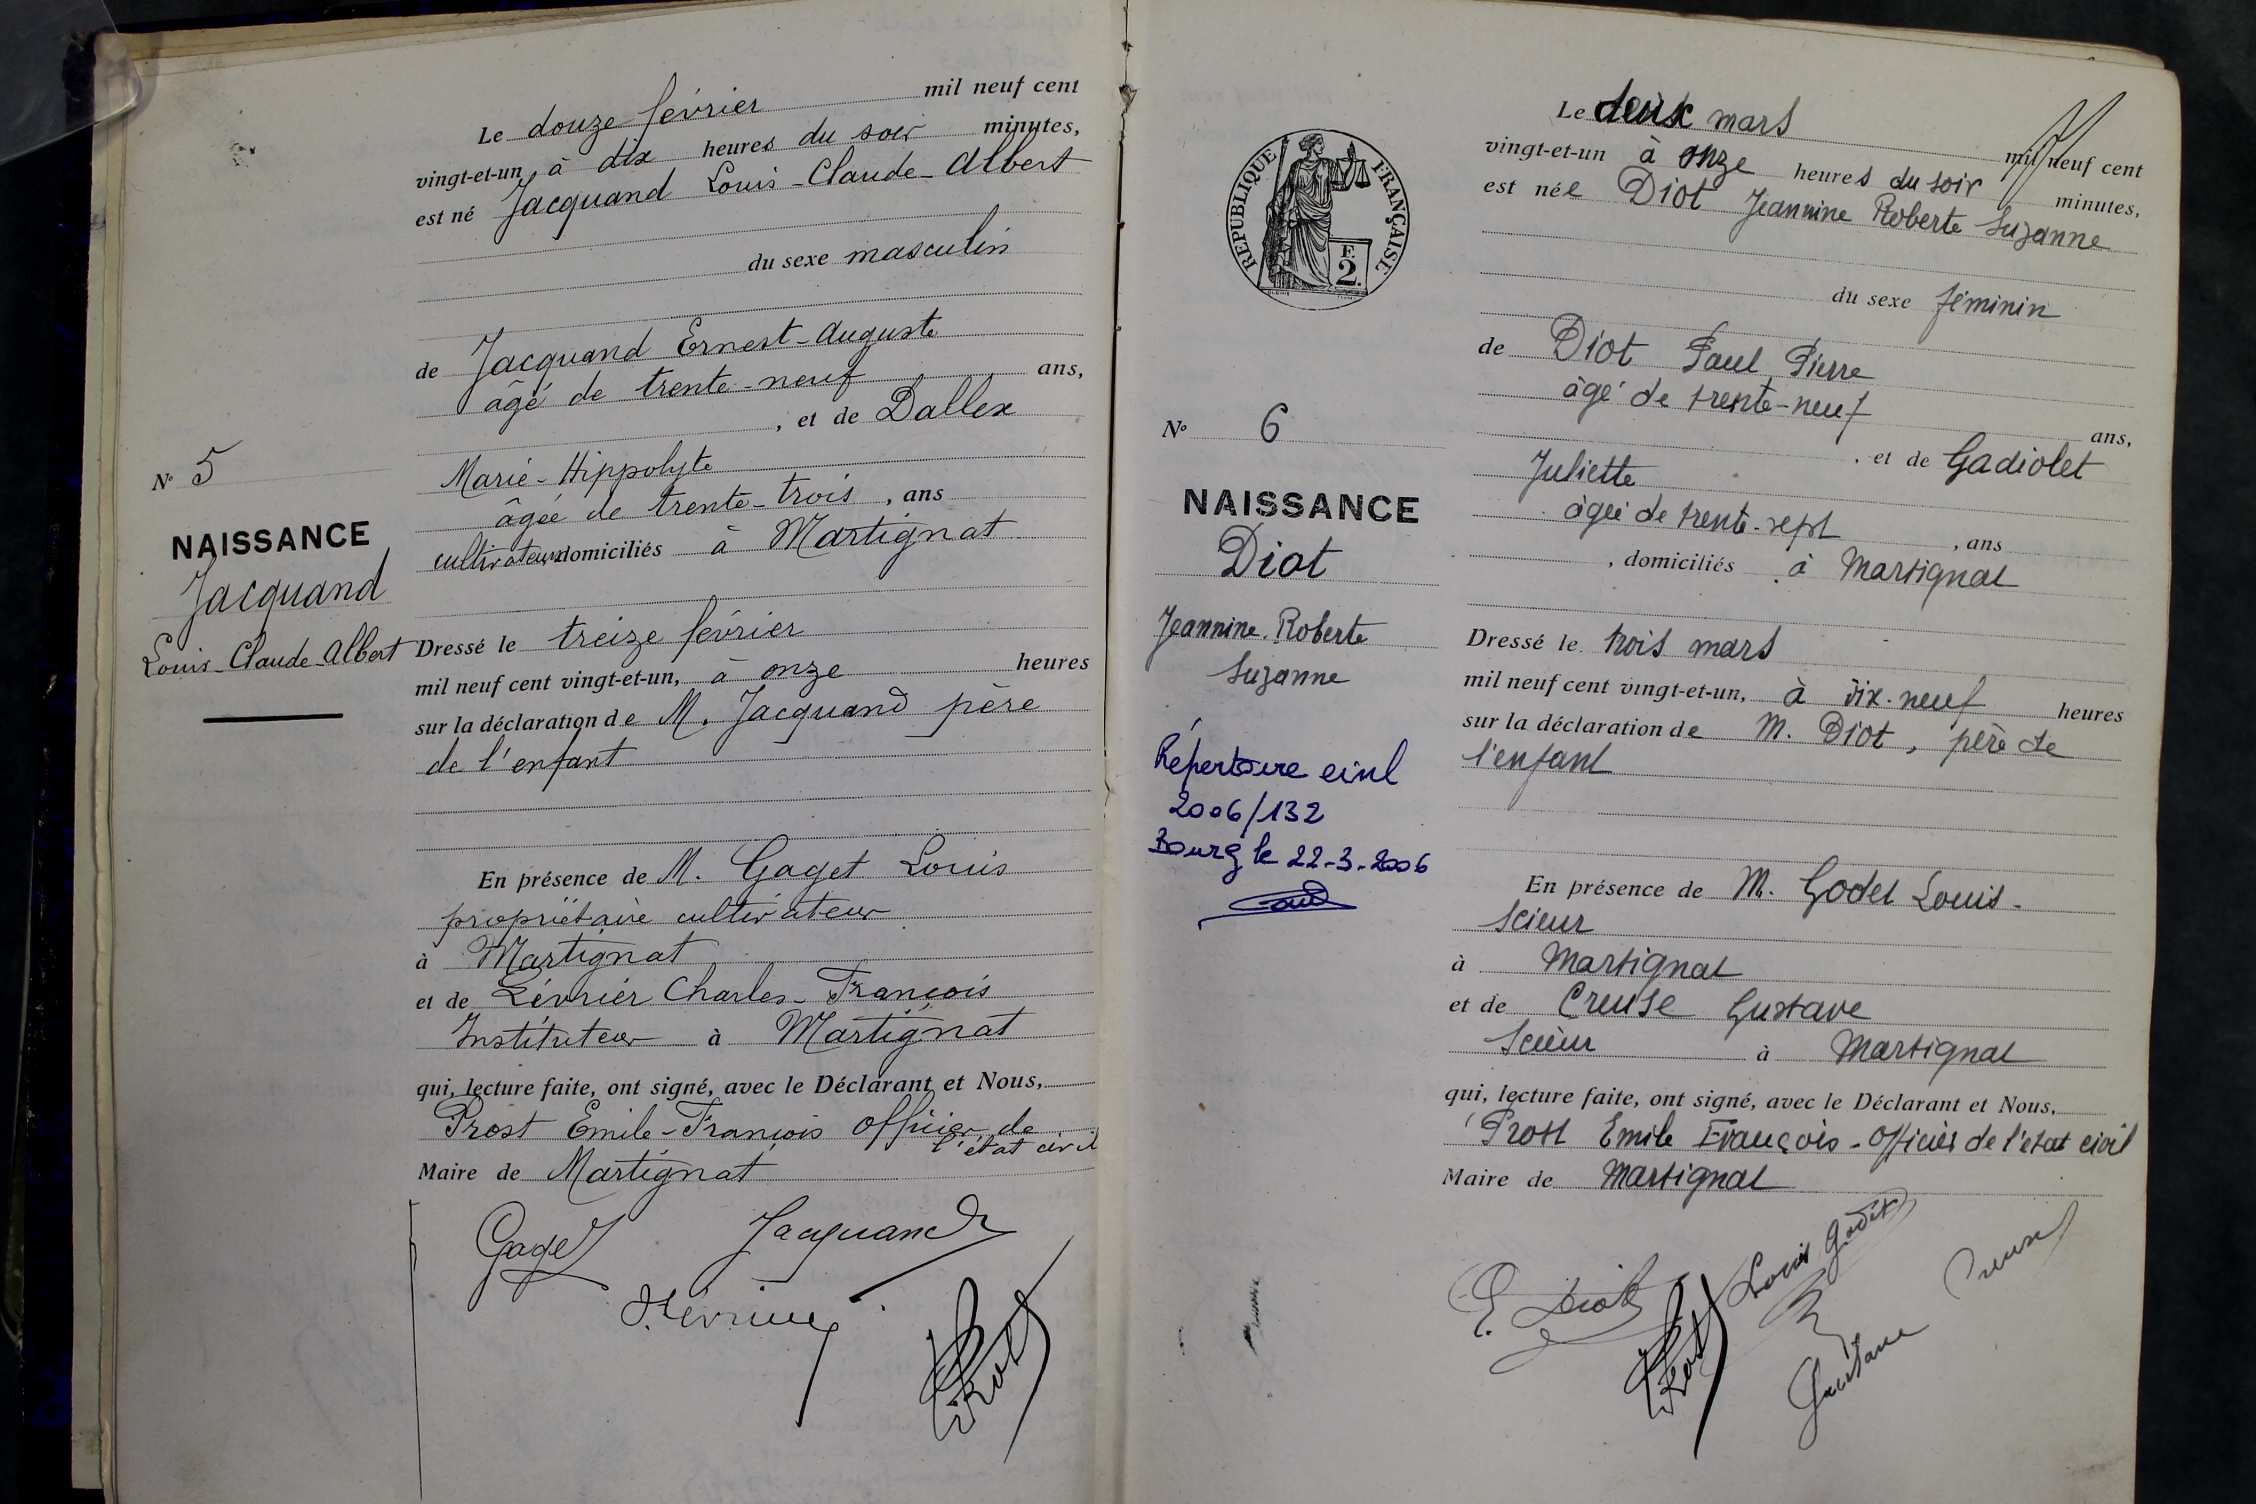 N° 5
NAISSANCE
Jacquand
Louis-Claude-Albert
Le douze février mil neuf cent
vingt-et-un à dix heures du soir minutes,
est né Jacquand Louis-Claude-Albert
du sexe masculin
de Jacquand Ernest-Auguste
âgé de trente-neuf ans,
, et de Dallex
Marie-Hippolyte
âgée de trente-trois, ans
cultivateurs domiciliés à Martignat
Dressé le treize février
mil neuf cent vingt-et-un, à onze heures
sur la déclaration de M. Jacquand père
de l'enfant
En présence de M. Gaget Louis
propriétaire cultivateur
à Martignat
et de Lévrier Charles-François
Instituteur à Martignat
qui, lecture faite, ont signé, avec le Déclarant et Nous,
Prost Emile-François officier de
l'état civil
Maire de Martignat
Gaget Jacquand
Prost
RÉPUBLIQUE FRANÇAISE
F.
2.
N° 6
NAISSANCE
Diot
Jeannine-Roberte
Suzanne
Répertoire civil
2006/132
Bourg le 22-3-2006
Le deux mars mil neuf cent
vingt-et-un à onze heures du soir minutes,
est née Diot Jeannine Roberte Suzanne
du sexe féminin
de Diot Paul Pierre
âgé de trente-neuf
ans,
, et de Gadiolet
Juliette
âgée de trente-sept, ans
, domiciliés à Martignat
Dressé le trois mars
mil neuf cent vingt-et-un, à dix-neuf heures
sur la déclaration de M. Diot, père de
l'enfant
En présence de M. Godet Louis-
scieur
à Martignat
et de Creuse Gustave
Scieur à Martignat
qui, lecture faite, ont signé, avec le Déclarant et Nous,
Prost Emile François-Officier de l'état civil
Maire de Martignat
Diot
Louis Godet
Creuse
Prost
Gustave